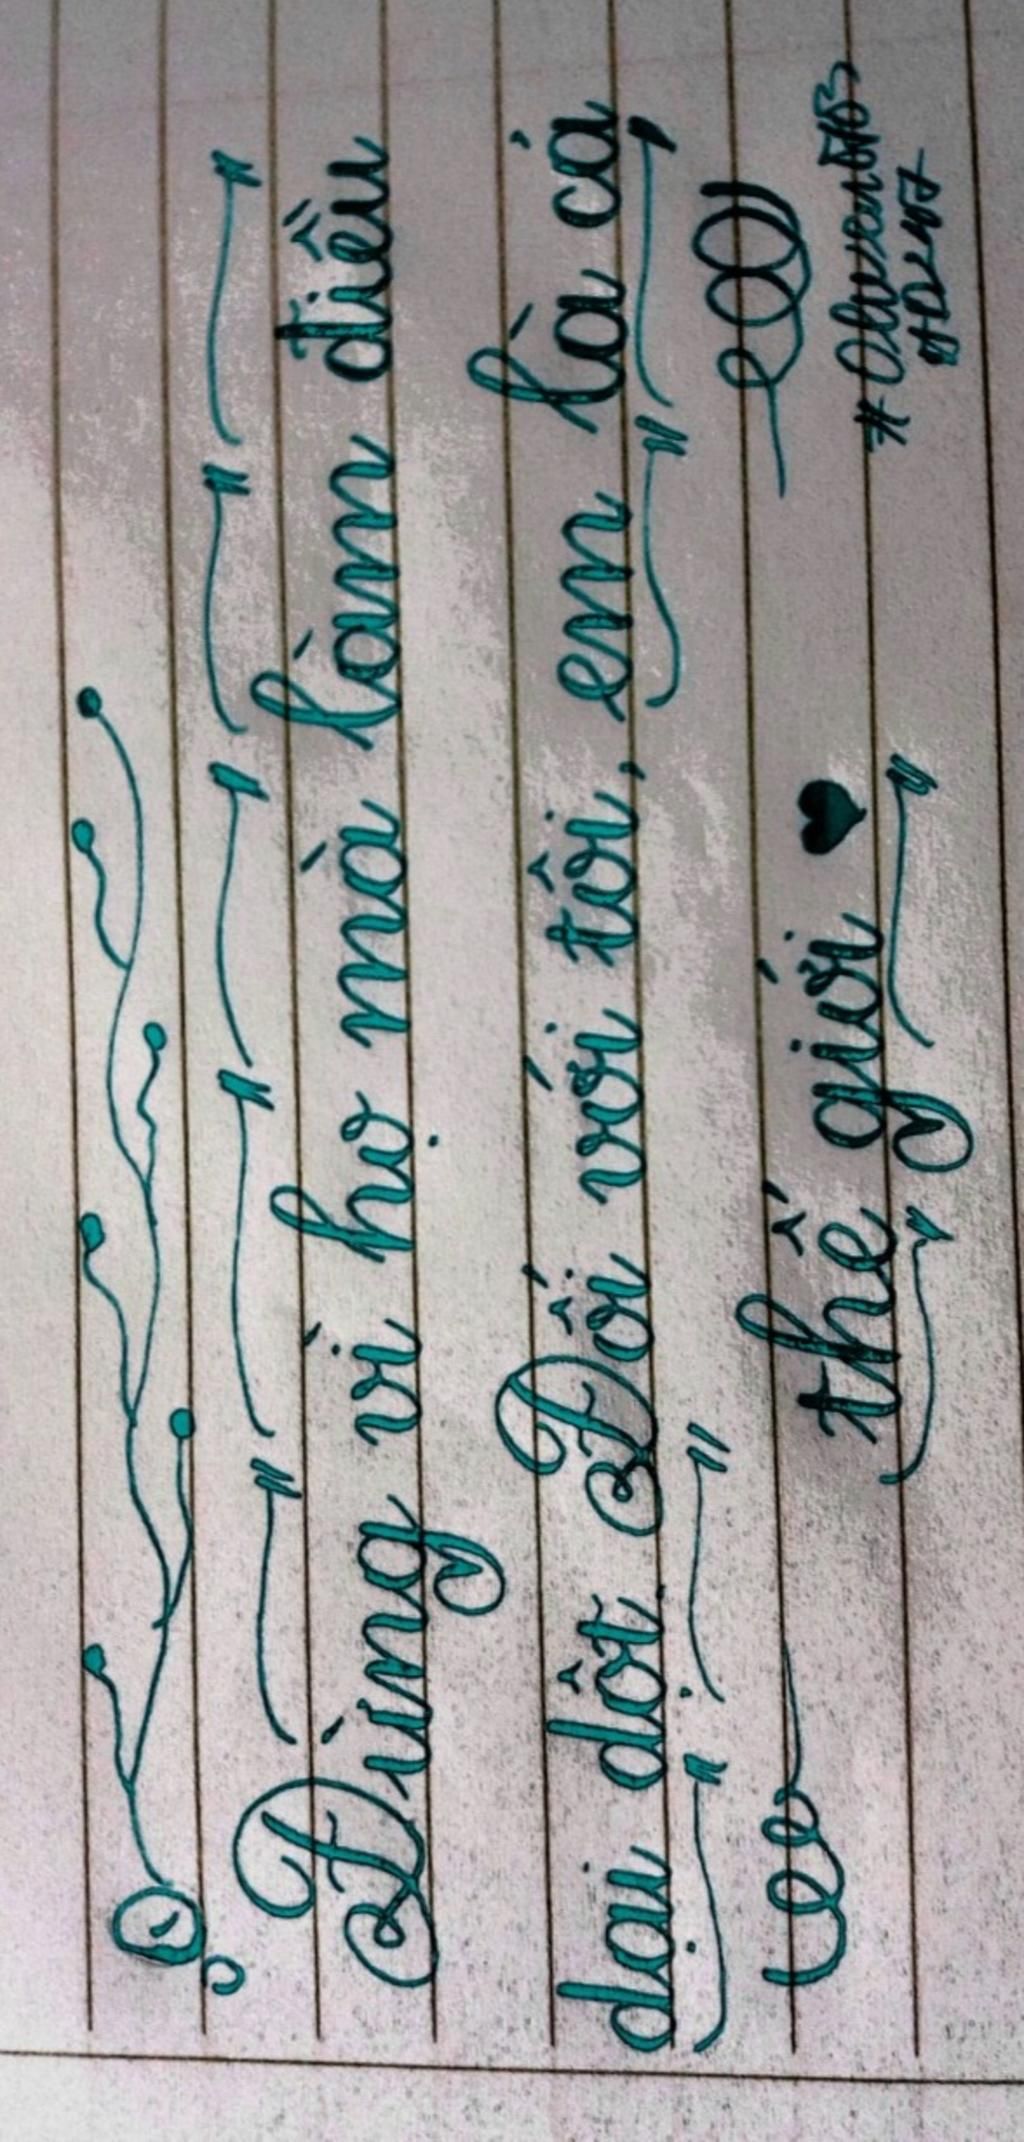 Đừng vì họ mà làm điều
dại dột. Đối với tôi, em là cả
thế giới